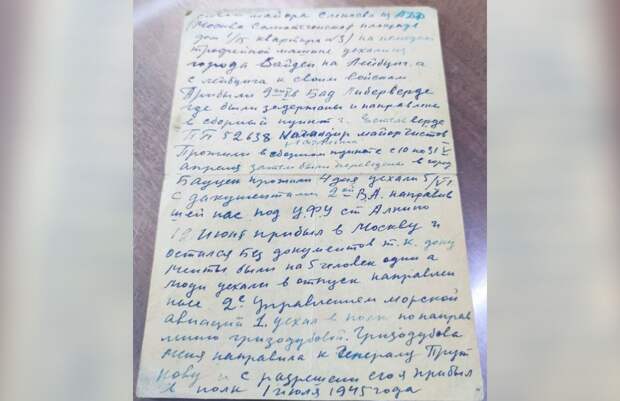 майора Слепова
(Москва Самотечной площади
дом 1/15 квартира №3) на немецкой
трофейной машине доехали
города Вайден на Лейбциг, а
с лейбцига к своим войскам
Прибыли 9го V в Бад Либерверде
где были задержаны и направлены
в сборный пункт г.
ПП 52638 Командир майор Чистов
Прожили в сборном пункте с 10 по 31 V
апреля затем были переведены в город
Бауцен прожили 4 дня уехали 5/VI
с документами 2ой В.А. направив
шей нас под УФУ ст Алкино
12 Июня прибыл в Москву и
остался без документов т.к. доку
менты были на 5 человек одни а
люди уехали в отпуск направлен
ные 2м Управлением морской
авиаций 1. уехал в полк по направ
лению гризодубовой. Гризодубова
меня направила к Генералу Прут
кову и с разрешения его я прибыл
в полк 1 июля 1945 года